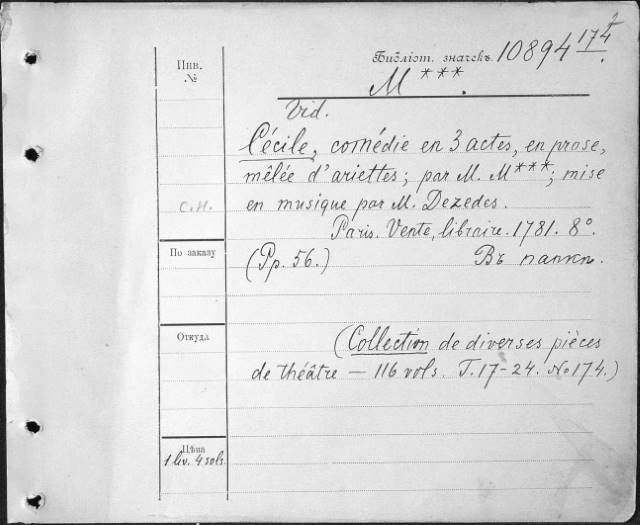 Инв. №
Библіот. значекъ. 10894 174
M ***.
Vid.
Cécile, comédie en 3 actes, en prose,
mêlée d'ariettes; par M. M***; mise
en musique par M. Dezedes.
С.Н.
Paris. Vente, libraire. 1781. 8°.
По заказу
(Pp. 56.) Въ папкѣ.
Откуда
(Collection de diverses pièces
de théâtre — 116 vols. T. 17-24. No 174.)
Цѣна
1 liv. 4 sols.